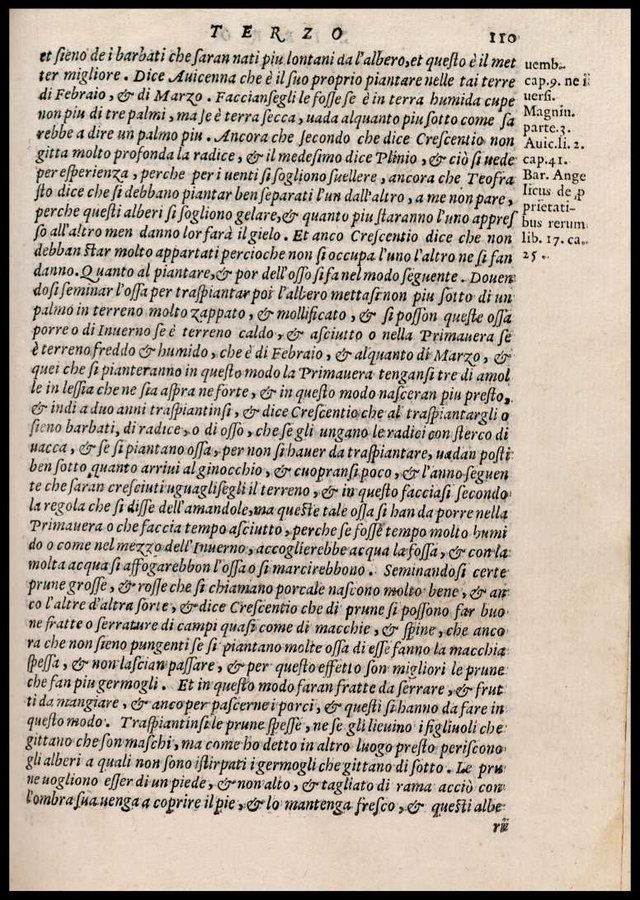 TERZO
110
et sieno de i barbati che saran nati piu lontani da l'albero, et questo è il met
ter migliore. Dice Auicenna che è il suo proprio piantare nelle tai terre
di Febraio, & di Marzo. Faccianseglile fosse se è in terra humida cupe
non piu di tre palmi, ma se è terra secca, uada alquanto piu sotto come sa
rebbe a dire un palmo piu. Ancora che secondo che dice Crescentio non
gitta molto profonda la radice, & il medesimo dice Plinio, & ciò si uede
per esperienza, perche per i uenti si sogliono suellere, ancora che Teofra
sto dice che si debbano piantar ben separati l'un dall'altro, a me non pare,
perche questi alberi si sogliono gelare, & quanto piu staranno l'uno appres
so all'altro men danno lor farà il gielo. Et anco Crescentio dice che non
debban star molto appartati percioche non si occupa l'uno l'altro ne si fan
danno. Quanto al piantare, & por dell'osso si fa nel modo seguente. Douen
dosi seminar l'ossa per traspiantar poi l'albero mettasi non piu sotto di un
palmo in terreno molto zappato, & mollificato, & si posson queste ossa
porre o di Inuerno se è terreno caldo, & asciutto o nella Primauera se
è terreno freddo & humido, che è di Febraio, & alquanto di Marzo, &
quei che si pianteranno in questo modo la Primauera tengansi tre di amol
le in lessia che ne sia aspra ne forte, & in questo modo nasceran piu presto,
& indi a duo anni traspiantinsi, & dice Crescentio che al traspiantargli o
sieno barbati, di radice, o di osso, che se gli ungano le radici con sterco di
uacca, & se si piantano ossa, per non si hauer da traspiantare, uadan posti
ben sotto quanto arriui al ginocchio, & cuopransi poco, & l'anno seguen
te che saran cresciuti uguaglisegli il terreno, & in questo facciasi secondo
la regola che si disse dell'amandole, ma queste tale ossa si han da porre nella
Primauera o che faccia tempo asciutto, perche se fosse tempo molto humi
do o come nel mezzo dell'Inuerno, accoglierebbe acqua la fossa, & con la
molta acqua si affogarebbon l'ossa o si marcirebbono. Seminandosi certe
prune grosse, & rosse che si chiamano porcale nascono molto bene, & an
co l'altre d'altra sorte, & dice Crescentio che di prune si possono far buo
ne fratte o serrature di campi quasi come di macchie, & spine, che anco
ra che non sieno pungenti se si piantano molte ossa di esse fanno la macchia
spessa, & non lascian passare, & per questo effetto son migliori le prune
che fan piu germogli. Et in questo modo faran fratte da serrare, & frut
ti da mangiare, & anco per pascerne i porci, & questi si hanno da fare in
questo modo. Traspiantinsi le prune spesse, ne se gli lieuino i figliuoli che
gittano che son maschi, ma come ho detto in altro luogo presto periscono
gli alberi a quali non sono istirpati i germogli che gittano di sotto. Le pru
ne uogliono esser di un piede, & non alto, & tagliato di rama acciò con
l'ombra sua uenga a coprire il pie, & lo mantenga fresco, & questi albe
rii
uemb.
cap. 9. ne ii
uersi.
Magnin.
parte. 3.
Auic. li. 2.
cap. 41.
Bar. Ange
licus de p
prietati-
bus rerum
lib. 17. ca.
25.